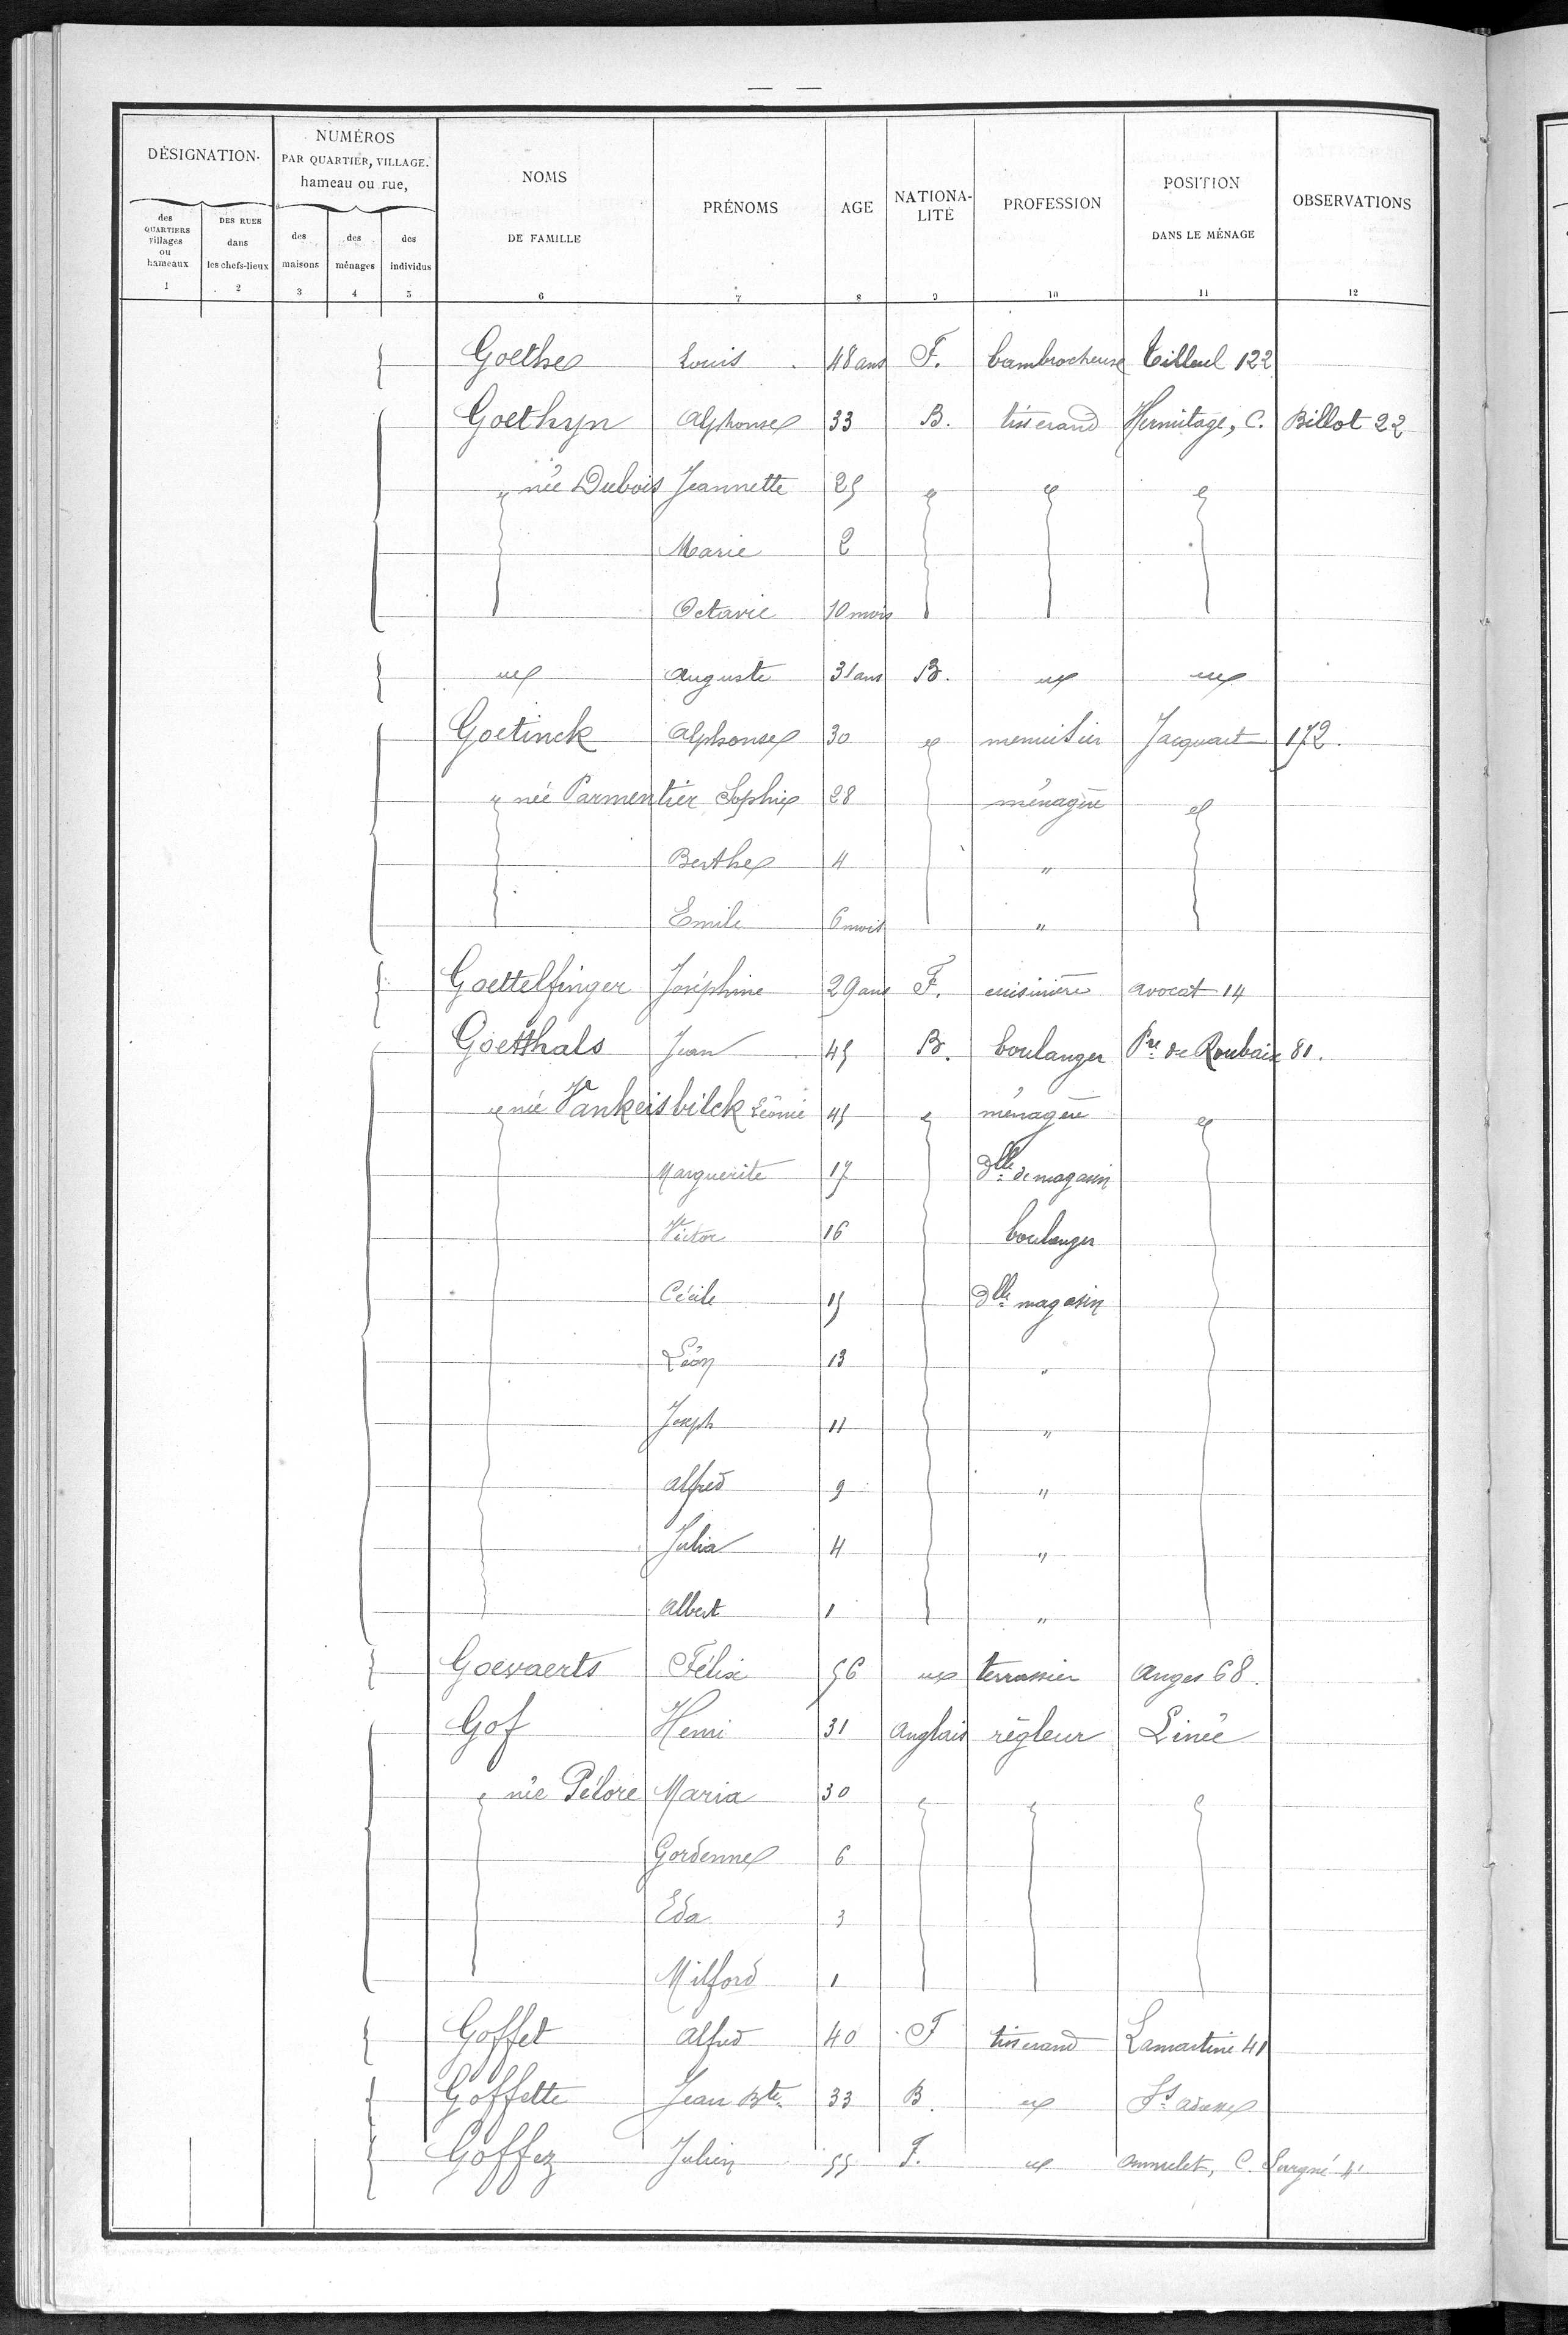 — —
DÉSIGNATION·
NUMÉROS PAR QUARTIER, VILLAGE. hameau ou rue,
NOMS DE FAMILLE
PRÉNOMS
AGE
NATIONA-LITÉ
PROFESSION
POSITION DANS LE MÉNAGE
OBSERVATIONS
des QUARTIERS villages ou hameaux
DES RUES dans les chefs-lieux
des maisons
des ménages
des individus
1 2 3 4 5 6 7 8 9 10 11 12
Goethe Louis 48 ans F. bambrocheuse Tilleul 122
Goethyn Alphonse 33 B. tisserand Hermitage, C. Billot 22
" née Dubois Jeannette 25 " " "
Marie 2
Octavie 10 mois
" Auguste 31 ans B. " "
Goetinck Alphonse 30 " menuisier Jacquart 172.
" née Parmentier Sophie 28 ménagère "
Berthe 4 "
Emile 6 mois "
Goettelfinger Joséphine 29 ans F. cuisinière avocat 14
Goetthals Jean 45 B. boulanger Pre de Roubaix 81.
" née Vankeisbilck Léonie 45 " ménagère "
Marguerite 17 dlle de magasin
Victor 16 boulanger
Cécile 15 dlle magasin
Léon 13 "
Joseph 11 "
Alfred 9 "
Julia 4 "
Albert 1 "
Goevaerts Félix 56 " terrassier Anges 68.
Gof Henri 31 Anglais régleur Linée
" née Pélore Maria 30 " " "
Gordenne 6
Eda 3
Milford 1
Goffet Alfred 40 F tisserand Lamartine 41
Goffette Jean Bte 33 B. " Ss adresse
Goffez Julien 55 F. " ammelet, C.